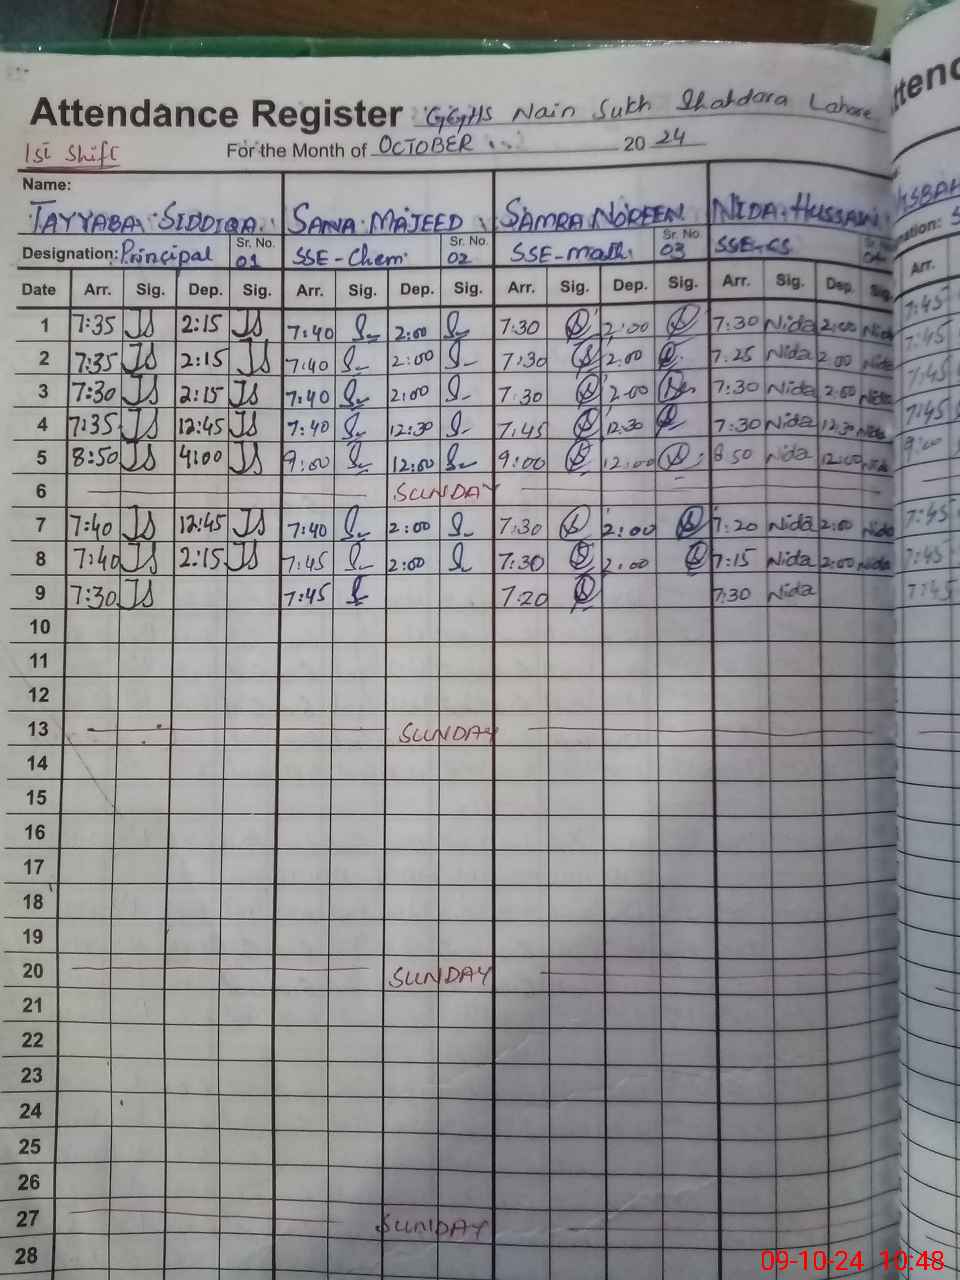 Attendance Register GGHS Nain Sukh Shahdara Lahore
1st Shift For the Month of OCTOBER 2024
Name:
TAYYABA SIDDIQA SANA MAJEED SAMRA NOREEN NIDA HUSSAIN
Designation: Principal Sr. No. 01 SSE-Chem Sr. No. 02 SSE-math Sr. No. 03 SSE-CS
Date Arr. Sig. Dep. Sig. Arr. Sig. Dep. Sig. Arr. Sig. Dep. Sig. Arr. Sig. Dep. Sig. Arr.
1 7:35 TS 2:15 TS 7:40 2:00 7:30 2:00 7:30 Nida 2:00 Nida 7:45
2 7:35 TS 2:15 TS 7:40 2:00 7:30 2:00 7:25 Nida 2:00 Nida 7:45
3 7:30 TS 2:15 TS 7:40 2:00 7:30 2:00 7:30 Nida 2:00 Nida 7:45
4 7:35 TS 12:45 TS 7:40 12:30 7:45 12:30 7:30 Nida 12:30 Nida 7:45
5 8:50 TS 4:00 TS 9:00 12:00 9:00 12:00 8:50 Nida 12:00 Nida 9:00
6 SUNDAY
7 7:40 TS 12:45 TS 7:40 2:00 7:30 2:00 7:20 Nida 2:00 Nida 7:45
8 7:40 TS 2:15 TS 7:45 2:00 7:30 2:00 7:15 Nida 2:00 Nida 7:45
9 7:30 TS 7:45 7:20 7:30 Nida 7:45
10
11
12
13 SUNDAY
14
15
16
17
18
19
20 SUNDAY
21
22
23
24
25
26
27 SUNDAY
28
09-10-24 10:48